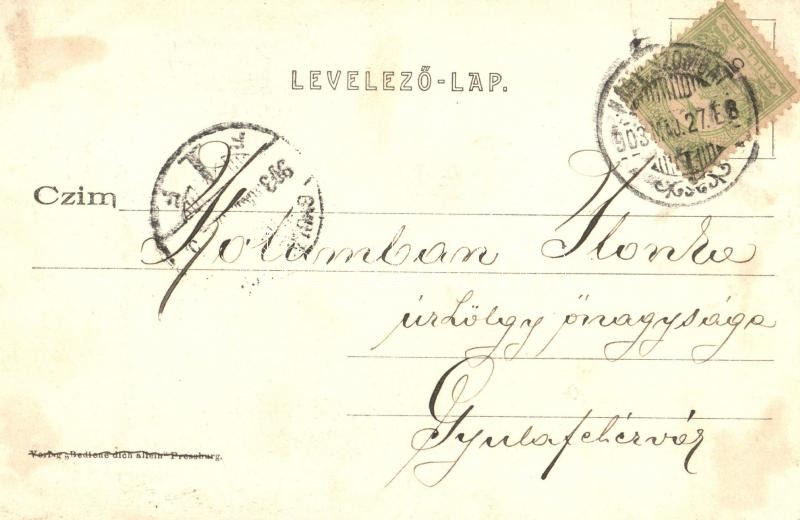 LEVELEZŐ-LAP.
903 MÁJ. 27. E 8
903
Czim
Kolumban Ilonka
úrhölgy őnagysága
Gyulafehérvár
Verlag „Bediene dich allein" Pressburg.